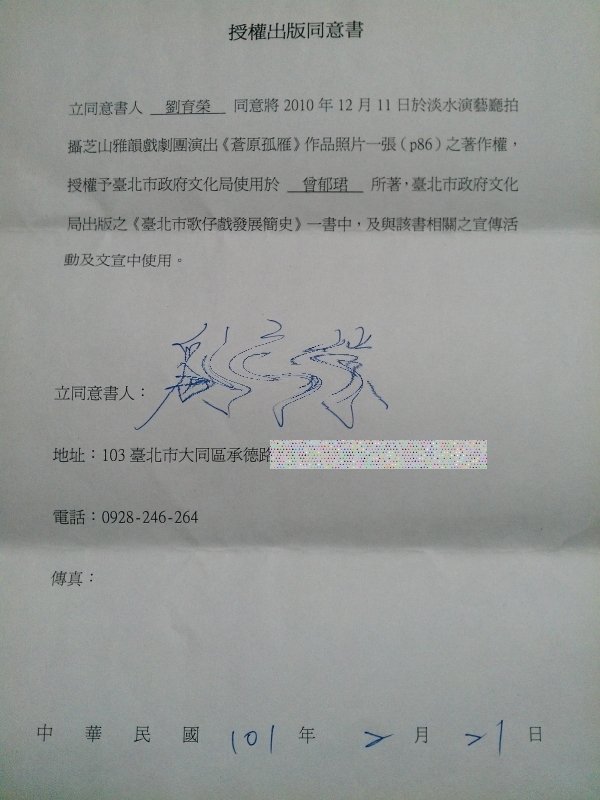 授權出版同意書
立同意書人 劉育榮 同意將 2010 年 12 月 11 日於淡水演藝廳拍
攝芝山雅韻戲劇團演出《蒼原孤雁》作品照片一張（p86）之著作權，
授權予臺北市政府文化局使用於 曾郁珺 所著，臺北市政府文化
局出版之《臺北市歌仔戲發展簡史》一書中，及與該書相關之宣傳活
動及文宣中使用。
立同意書人： 劉育榮
地址：103 臺北市大同區承德路
電話：0928-246-264
傳真：
中華民國 101 年 2 月 21 日